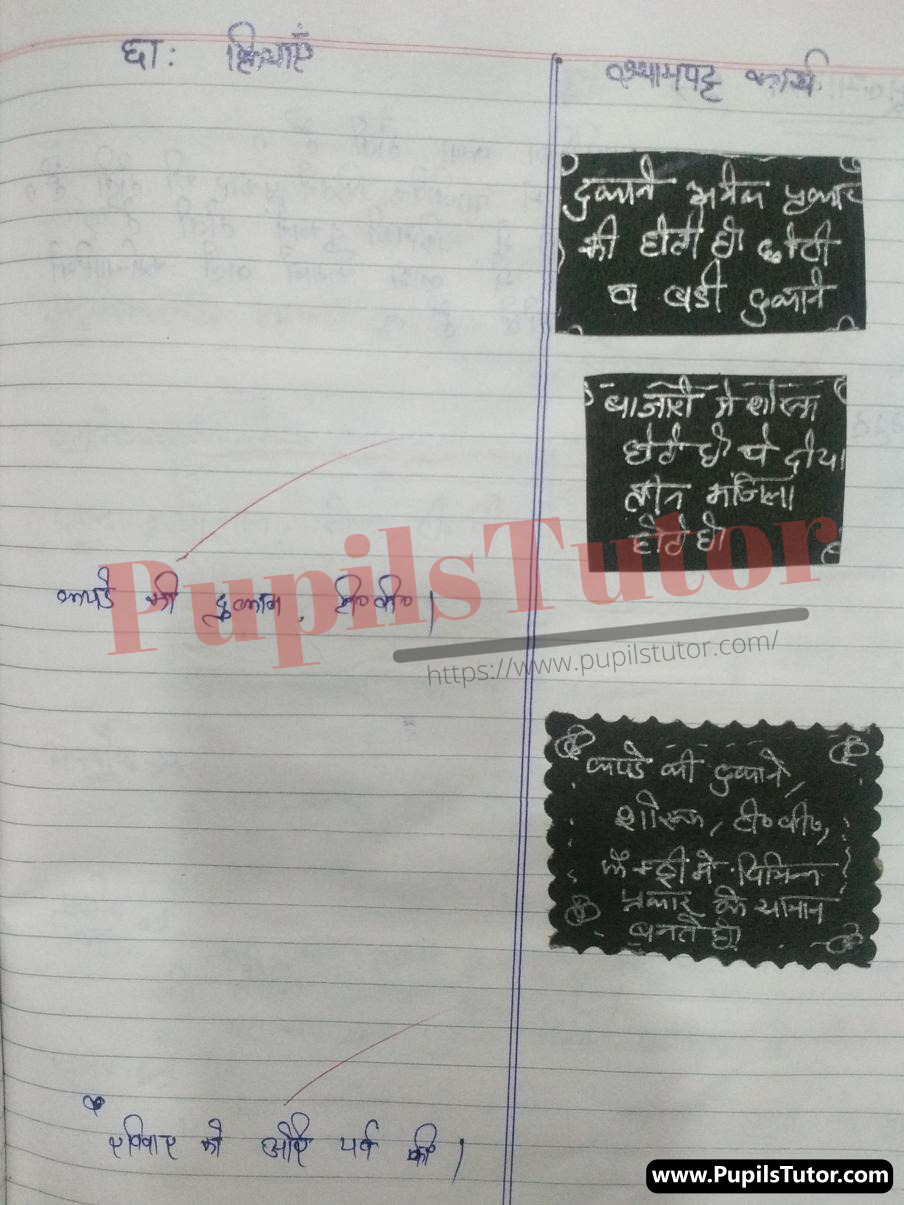 छा: क्रियाएँ
श्यामपट्ट कार्य
दुकाने अनेक प्रकार
की होती है। छोटी
व बडी दुकाने
बाजारो मे शोरूम
होते है ये दो या
तीन मंजिला
होते है।
कपडे की दुकान, टी०वी०।
PupilsTutor
https://www.pupilstutor.com/
कपडे की दुकाने,
शोरूम, टी०वी०,
मे विभिन्न
प्रकार के सामान
बनते है।
रविवार को और पर्व की।
www.PupilsTutor.com